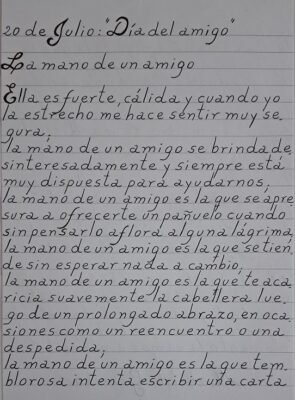 20 de Julio: "Día del amigo"
La mano de un amigo
Ella es fuerte, cálida y cuando yo
la estrecho me hace sentir muy se,
gura;
la mano de un amigo se brinda de,
sinteresadamente y siempre está
muy dispuesta para ayudarnos;
la mano de un amigo es la que se apre,
sura a ofrecerte un pañuelo cuando
sin pensarlo aflora alguna lágrima,
la mano de un amigo es la que se tien,
de sin esperar nada a cambio;
la mano de un amigo es la que te aca,
ricia suavemente la cabellera lue,
go de un prolongado abrazo, en oca,
siones como un reencuentro o una
despedida;
la mano de un amigo es la que tem,
blorosa intenta escribir una carta